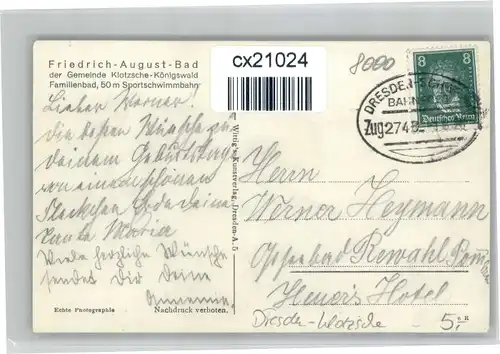 Friedrich-August-Bad
der Gemeinde Klotzsche-Königswald
Familienbad, 50 m Sportschwimmbahn
cx21024
8000
8
Deutsches Reich
DRESDEN
BAHNPOST
Zug 274
Lieber Werner!
die besten Wünsche zu
deinem Geburtstag
von einem schönen
Fleckchen Erde deine
Tante Maria
Viele herzliche Wünsche
sendet Dir Deine
Herrn
Werner Heymann
Ostseebad Rewahl Pom
Hotel
Wittig's Kunstverlag, Dresden-A. 5
Echte Photographie
Nachdruck verboten.
Dresden-Klotzsche
5,-